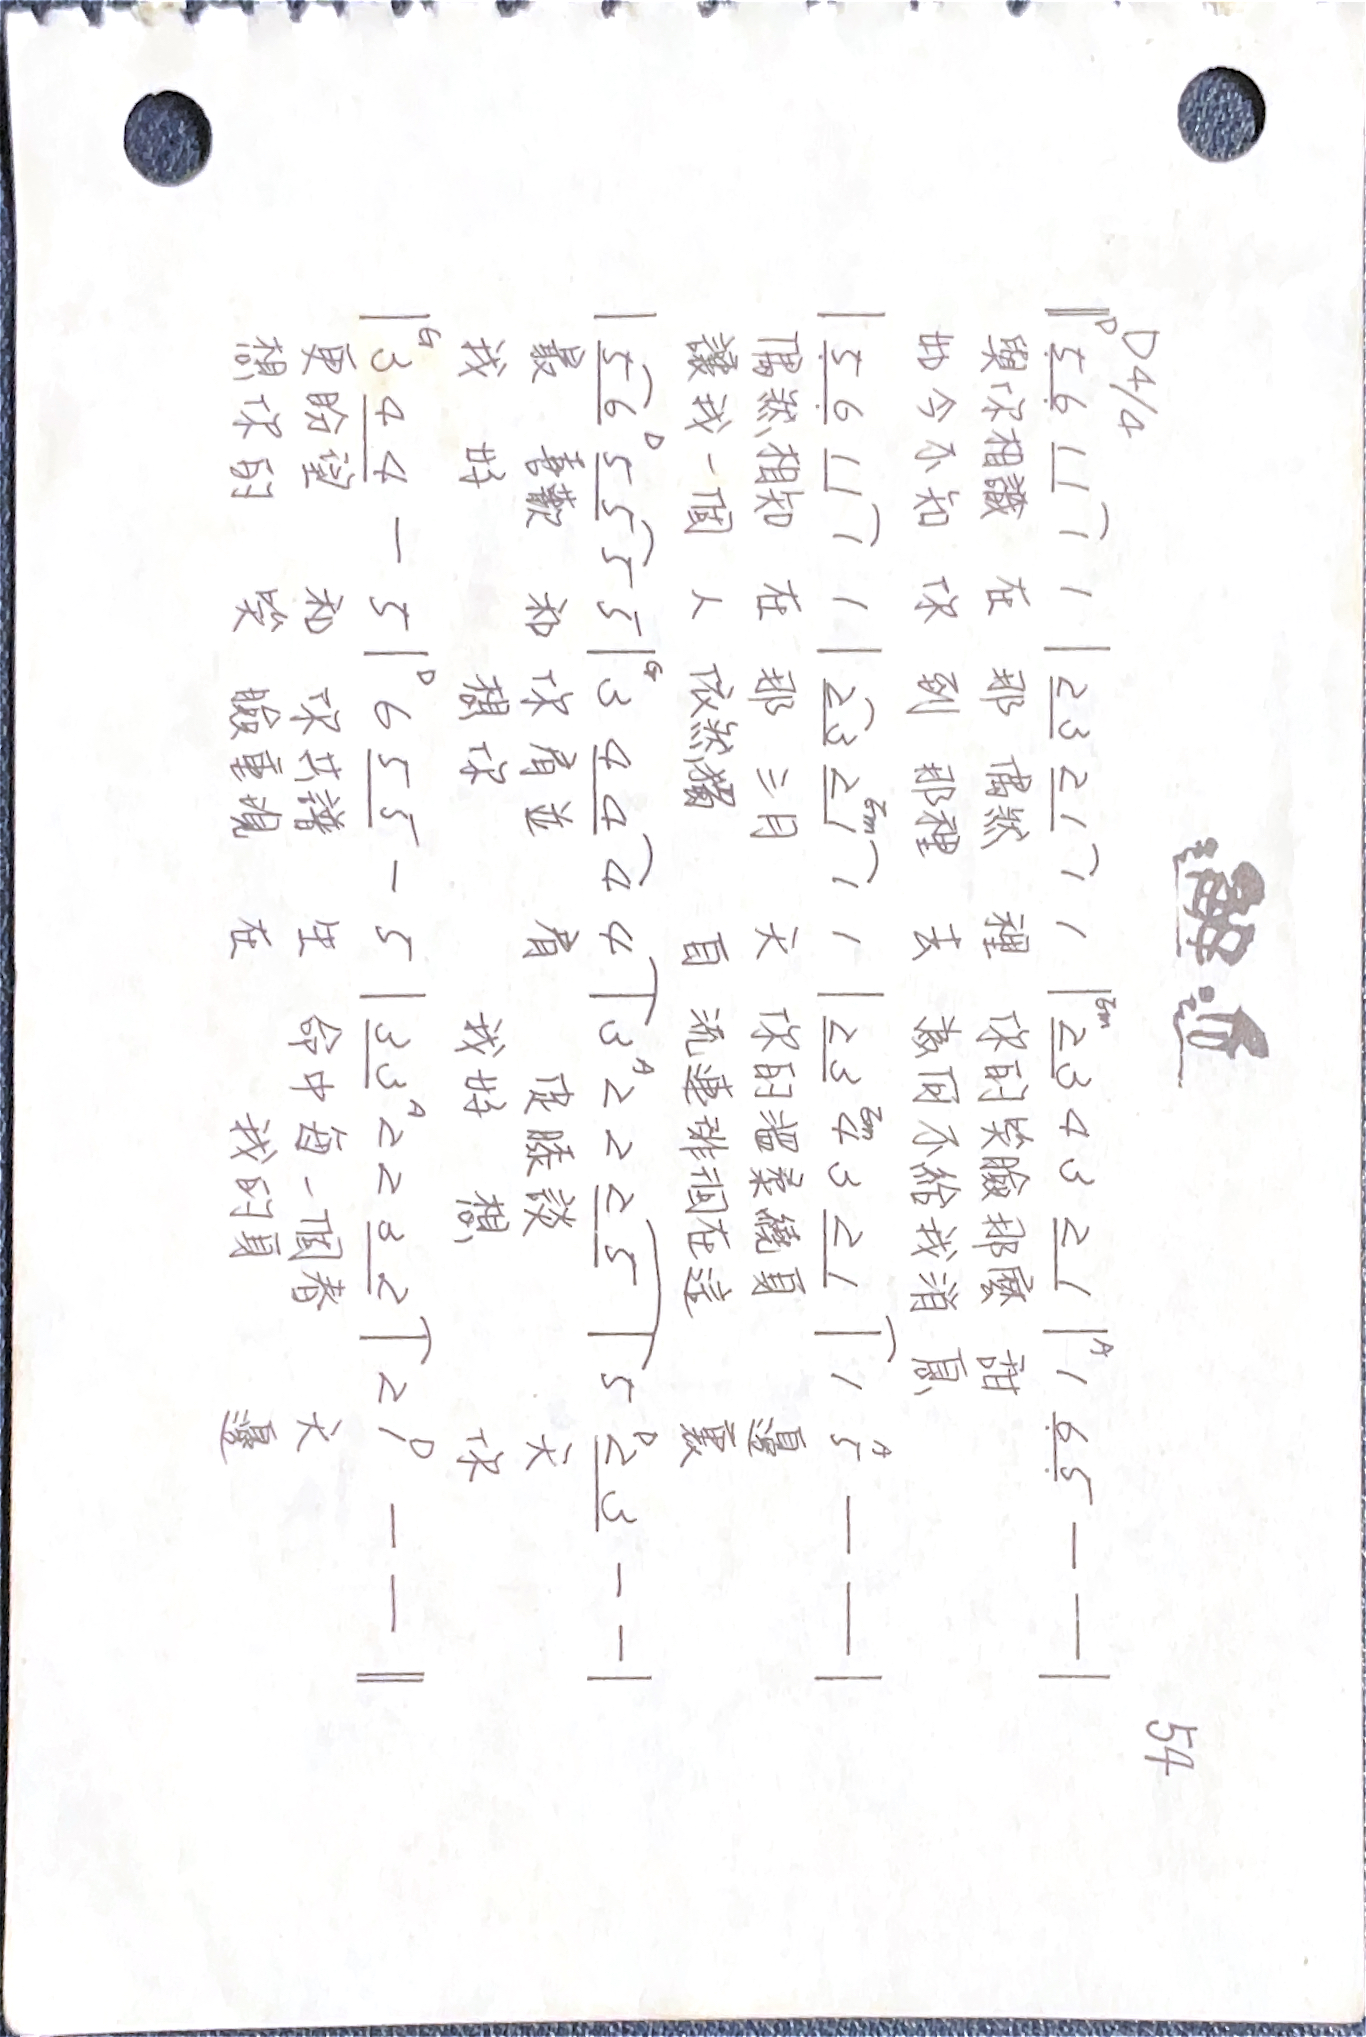 邂逅
54
D 4/4
D Em A
‖ 5 6 1 1 1 1 | 2 3 2 1 1 1 | 2 3 4 3 2 1 | 1 6 5 — — |
與你相識 在 那 偶然 裡 你的笑臉那麼 甜
如今不知 你 到 那裡 去 為何不給我消 息
Em Em A
| 5 6 1 1 1 1 | 2 3 2 1 1 1 | 2 3 4 3 2 1 | 1 5 — — |
偶然相知 在 那 三月 天 你的溫柔繞身 邊
讓我一個 人 依然獨 自 流連徘徊在這 裏
D G A D
| 5 6 5 5 5 5 | 3 4 4 4 4 | 3 2 2 2 5 | 5 2 3 — — |
最 喜歡 和 你 肩並 肩 促膝談 天
我 好 想你 我好 想 你
G D A D
| 3 4 4 — 5 | 6 5 5 — 5 | 3 3 2 2 3 2 | 2 1 — — ‖
更盼望 和 你共譜 生 命中每一個春 天
想你的 笑 臉重現 在 我的身 邊